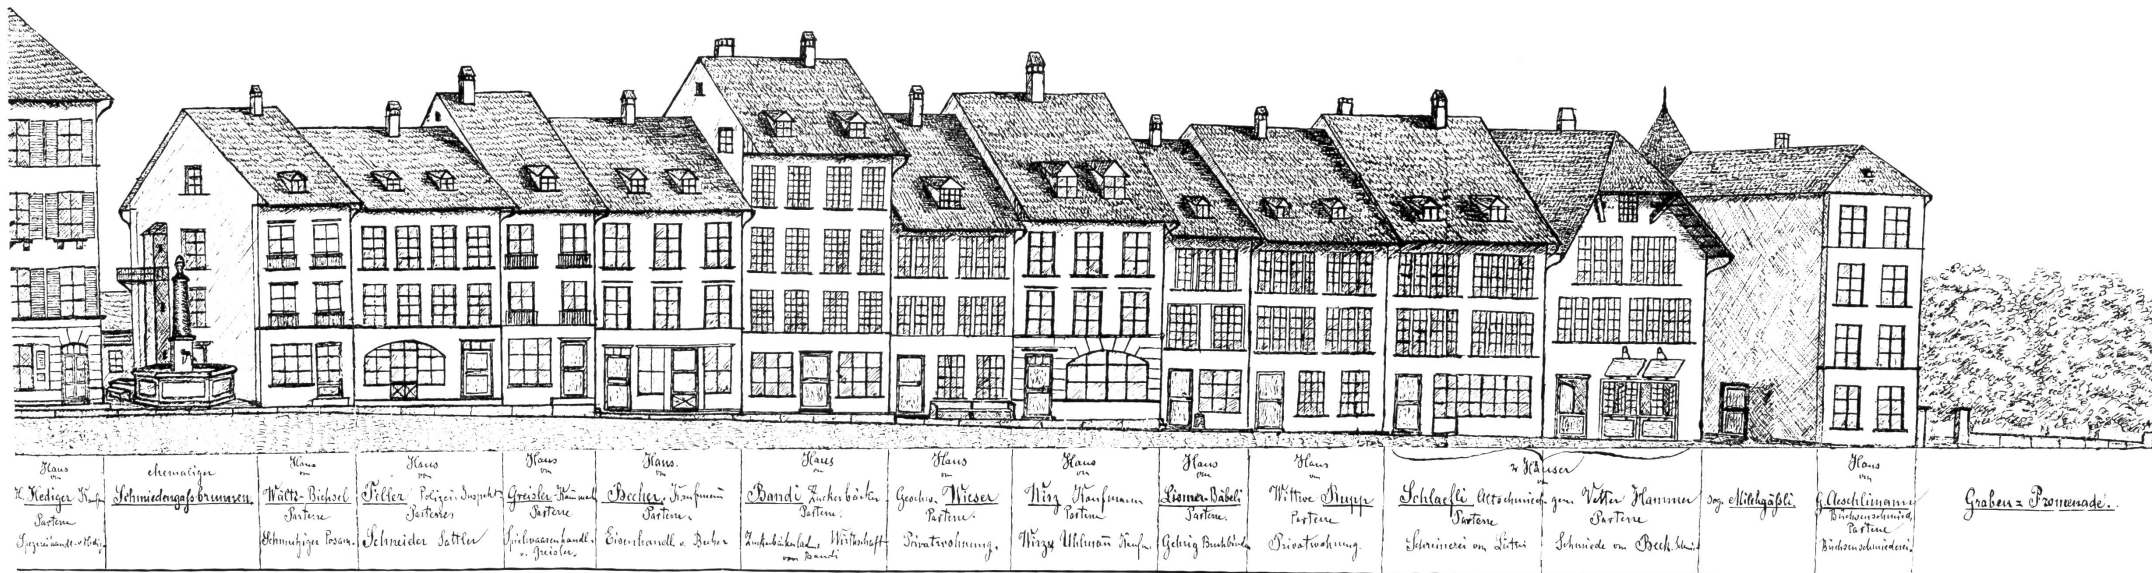 Haus
von
H. Hediger Kaufm
Parterre
Spezereihandl. v. Hedig.
ehemaliger
Schmiedengaßbrunnen.
Haus
von
Wältz-Biehsel
Parterre
Schmutziger Posam.
Haus
von
Feller Polizei-Inspekt
Parterres
Schneider Sattler
Haus
von
Greisler
Parterre
Spielwaarenhandl.
v. Greisler.
Haus.
von
Becher, Kaufmann
Parterre.
Eisenhandl. v. Becher
Haus
von
Bandi Zuckerbäcker
Parterre.
Wirthschaft
von Bandi
Haus
von
Geschw. Wieser
Parterre.
Privatwohnung.
Haus
von
Wirz Kaufmann
Parterre
Wirz Uhlmann Kaufm.
Haus
von
Lismer-Bäbeli
Parterre.
Gehrig Buchbinder
Haus
von
Wittwe Rupp
Parterre
Privatwohnung.
2 Häuser
von
Schlaefli Altschmied
Parterre
Schreinerei von Lüthi
gen. Vetter Hammer
Parterre
Schmiede von Beck.
sog. Milchgäßli.
Haus
von
G. Aeschlimann
Büchsenschmied,
Parterre
Büchsenschmiederei.
Graben=Promenade.